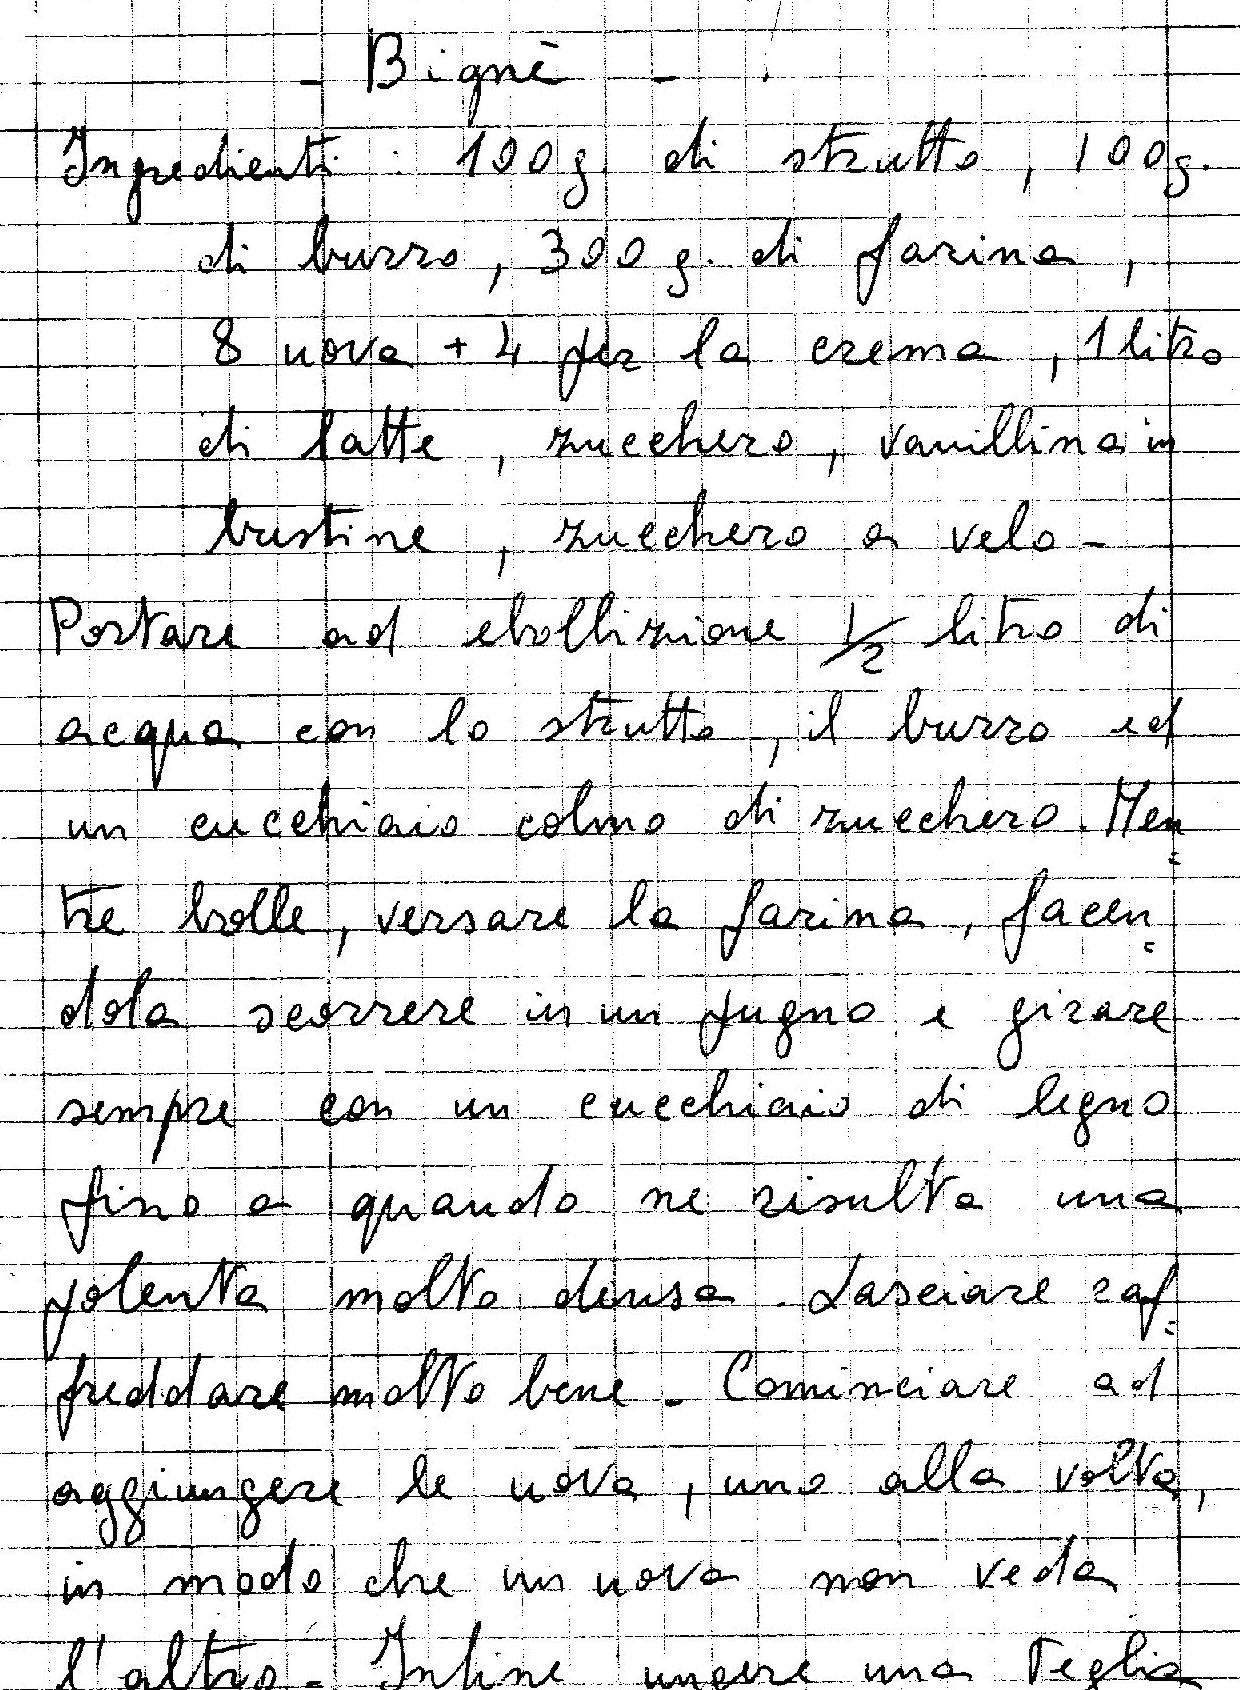 - Bignè -
Ingredienti : 100 g. di strutto, 100 g.
di burro, 300 g. di farina,
8 uova + 4 per la crema, 1 litro
di latte, zucchero, vanillina in
bustine, zucchero a velo -
Portare ad ebollizione 1/2 litro di
acqua con lo strutto, il burro ed
un cucchiaio colmo di zucchero. Men=
tre bolle, versare la farina, facen=
dola scorrere in un pugno e girare
sempre con un cucchiaio di legno
fino a quando ne risulta una
polenta molto densa. Lasciare raf=
freddare molto bene - Cominciare ad
aggiungere le uova, uno alla volta,
in modo che un uova non veda
l'altro - Infine ungere una teglia